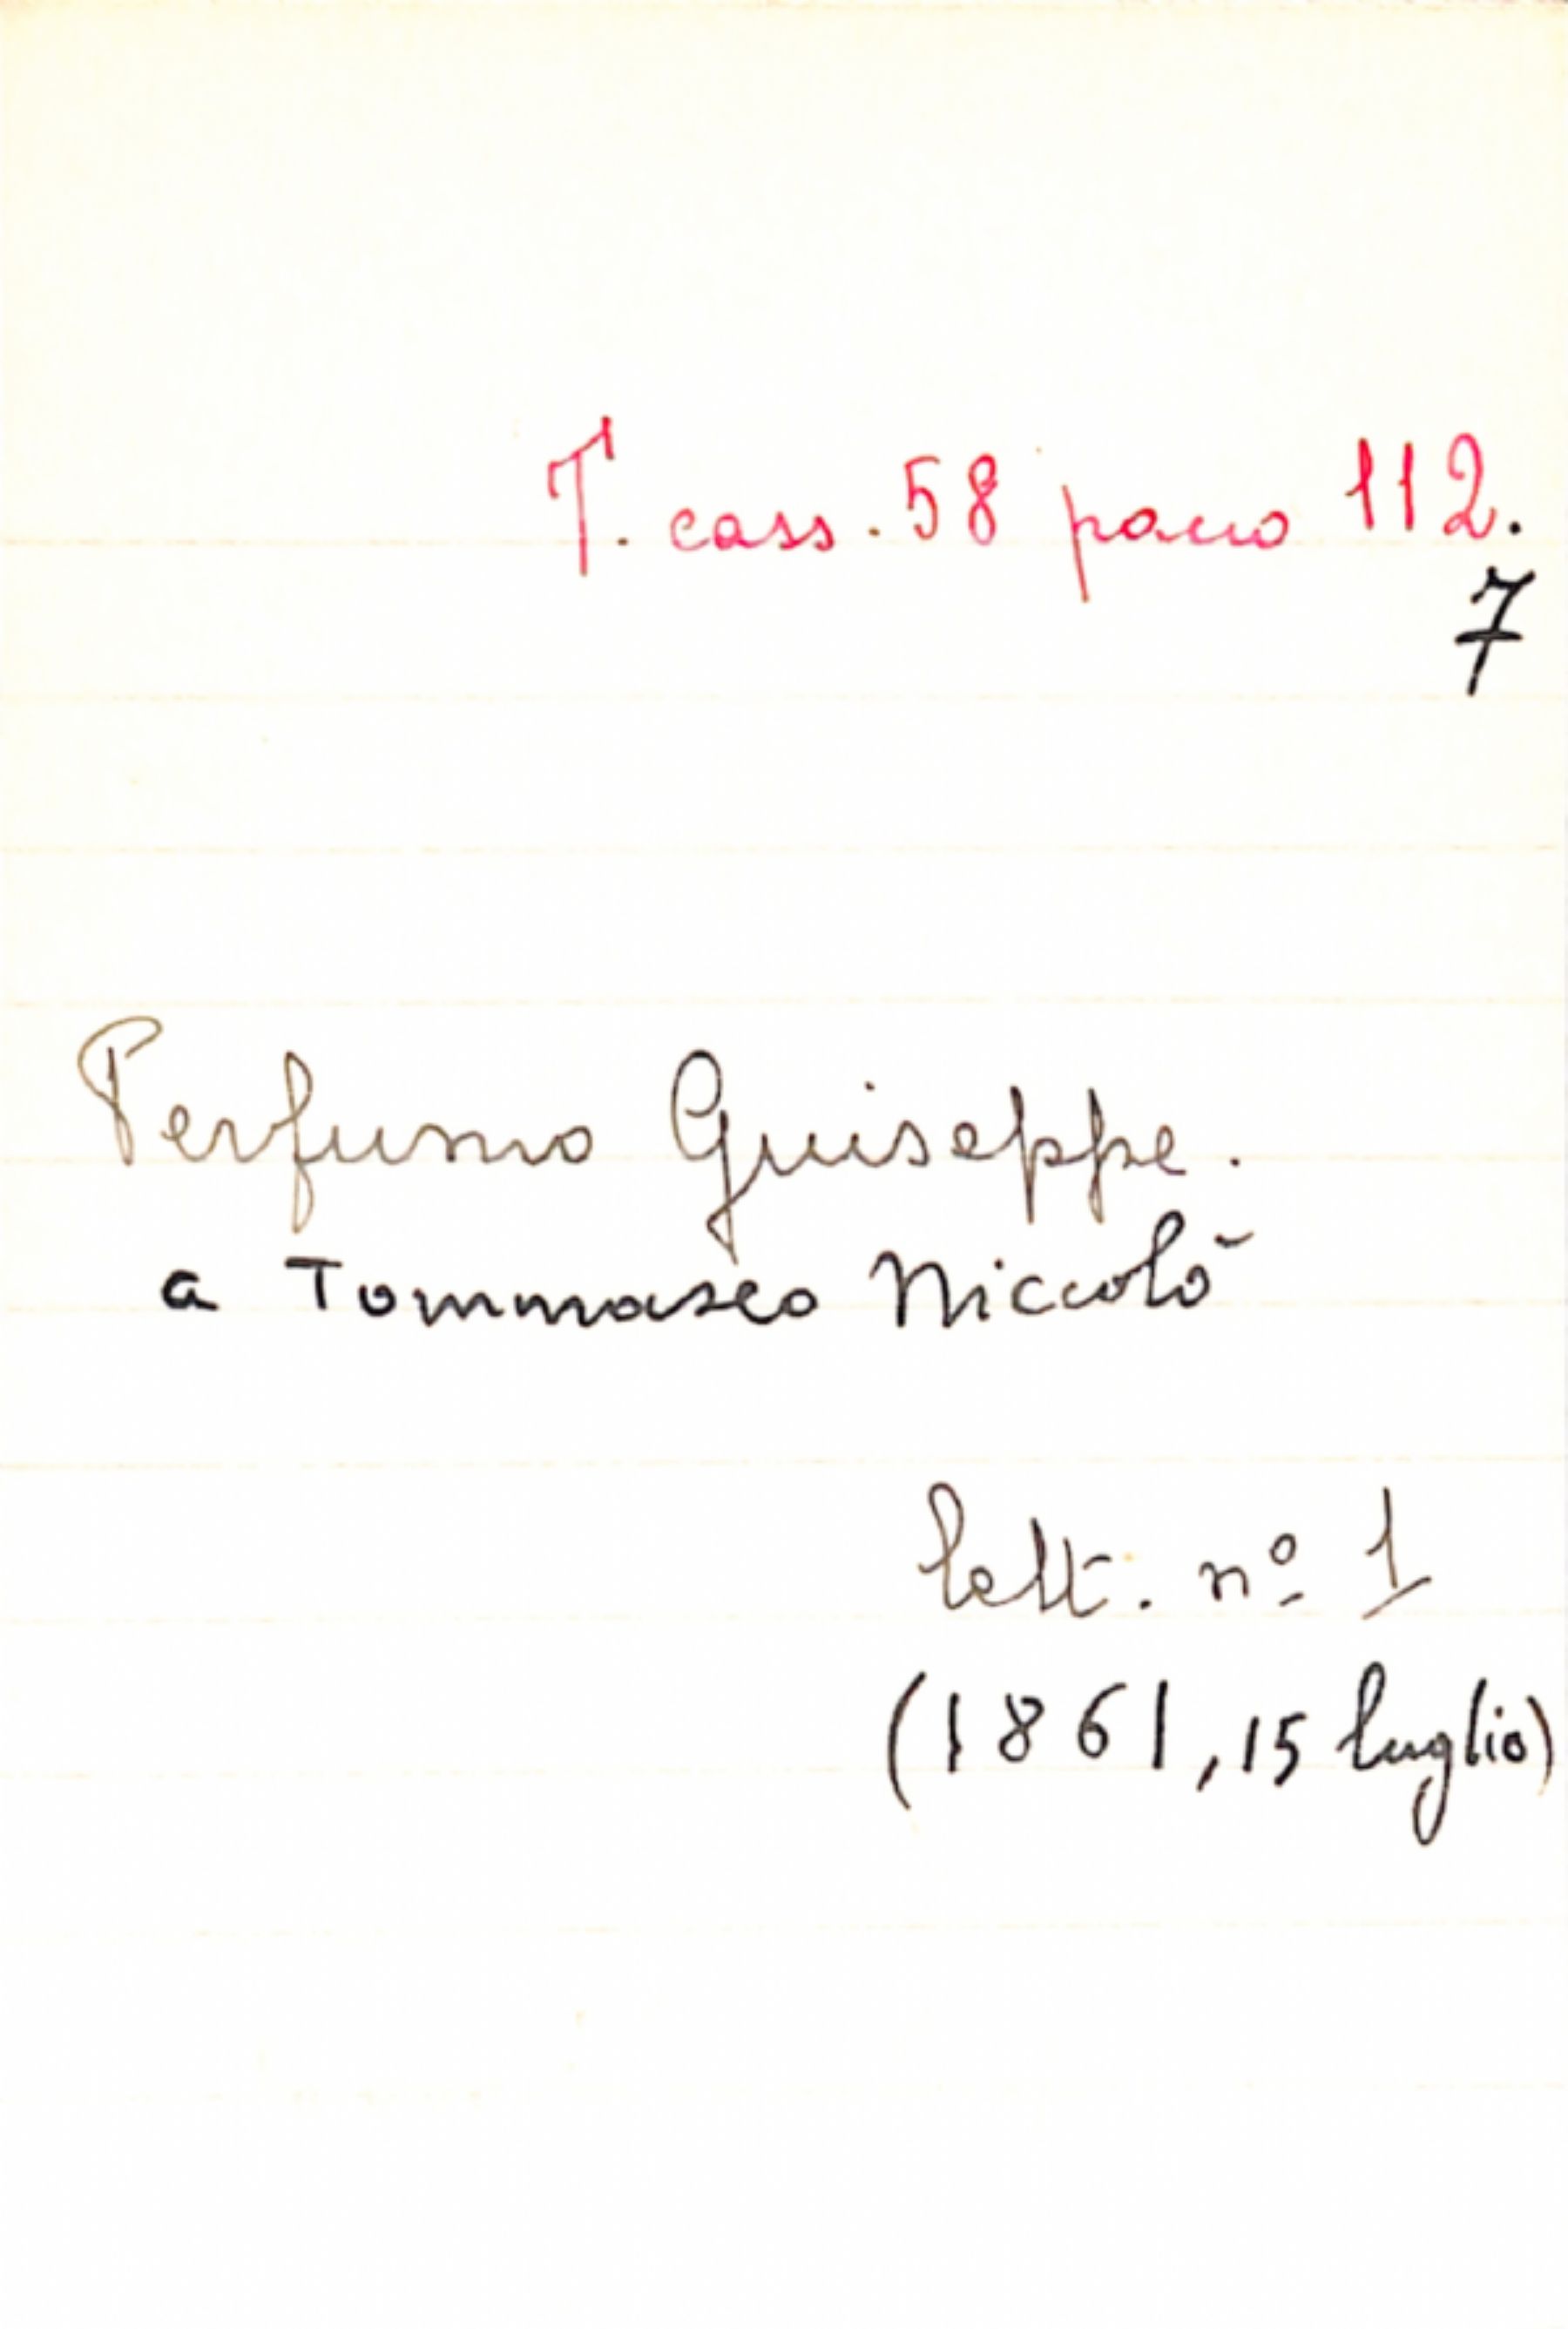 T. cass. 58 pacco 112.
7
Perfumo Giuseppe.
a Tommaseo Niccolò
lett. nº 1
(1861, 15 luglio)